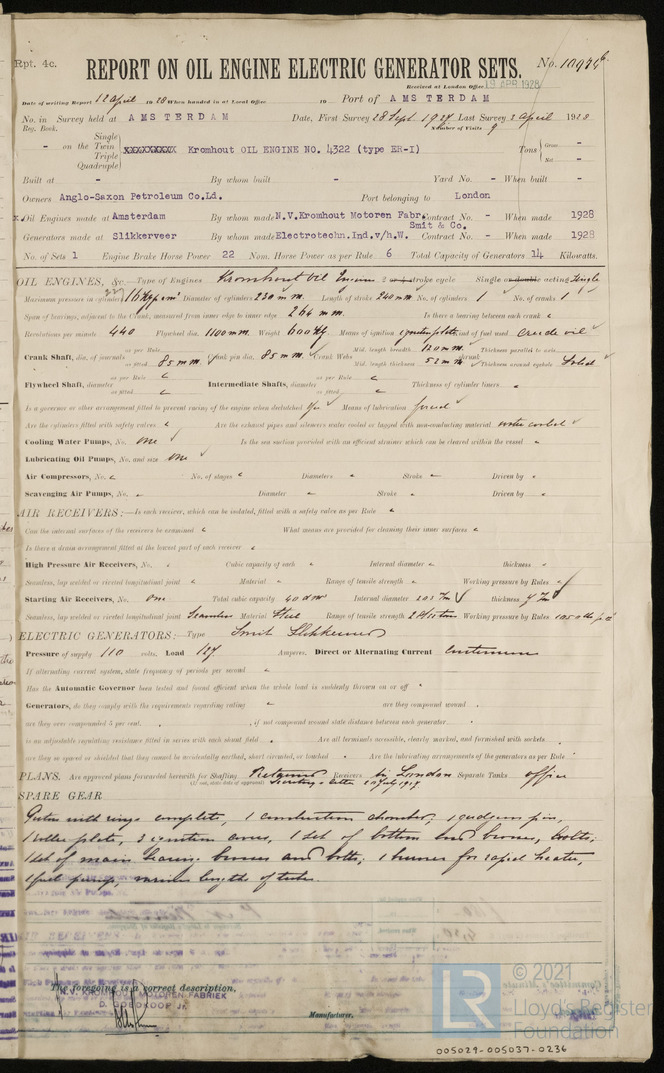 Rpt. 4c.
REPORT ON OIL ENGINE ELECTRIC GENERATOR SETS.
No. 10974b
Received at London Office 19 APR 1928
Date of writing Report 12 April 1928 When handed in at Local Office 19 Port of AMSTERDAM
No. in Survey held at AMSTERDAM Date, First Survey 28 Sept 1927 Last Survey 2 April 1928
Reg. Book. Number of Visits 9
- on the Single Twin Triple Quadruple XXXXXXXXX Kromhout OIL ENGINE NO. 4322 (type ER-I) Tons Gross - Net -
Built at - By whom built - Yard No. - When built -
Owners Anglo-Saxon Petroleum Co.Ld. Port belonging to London
Oil Engines made at Amsterdam By whom made N.V.Kromhout Motoren Fabr. Contract No. - When made 1928
Smit & Co.
Generators made at Slikkerveer By whom made Electrotechn.Ind.v/h.W. Contract No. - When made 1928
No. of Sets 1 Engine Brake Horse Power 22 Nom. Horse Power as per Rule 6 Total Capacity of Generators 14 Kilowatts.
OIL ENGINES, &c.—Type of Engines Kromhout Oil Engine 2 stroke cycle Single acting Single
Maximum pressure in cylinders 16 Kg/cm² Diameter of cylinders 230 m.m. Length of stroke 240 m.m. No. of cylinders 1 No. of cranks 1
Span of bearings, adjacent to the Crank, measured from inner edge to inner edge 264 m.m. Is there a bearing between each crank
Revolutions per minute 440 Flywheel dia. 1100 m.m. Weight 600 Kg Means of ignition ignition plate Kind of fuel used Crude oil
Crank Shaft, dia. of journals as per Rule as fitted 85 m.m. Crank pin dia. 85 m.m. Crank Webs Mid. length breadth 120 m.m. Mid. length thickness 52 m.m. shrunk Thickness parallel to axis Thickness around eyehole Solid
Flywheel Shaft, diameter as per Rule as fitted Intermediate Shafts, diameter as per Rule as fitted Thickness of cylinder liners
Is a governor or other arrangement fitted to prevent racing of the engine when declutched Yes Means of lubrication forced
Are the cylinders fitted with safety valves Are the exhaust pipes and silencers water cooled or lagged with non-conducting material water cooled
Cooling Water Pumps, No. One Is the sea suction provided with an efficient strainer which can be cleared within the vessel
Lubricating Oil Pumps, No. and size One
Air Compressors, No. No. of stages Diameters Stroke Driven by
Scavenging Air Pumps, No. Diameter Stroke Driven by
AIR RECEIVERS:—Is each receiver, which can be isolated, fitted with a safety valve as per Rule
Can the internal surfaces of the receivers be examined What means are provided for cleaning their inner surfaces
Is there a drain arrangement fitted at the lowest part of each receiver
High Pressure Air Receivers, No. Cubic capacity of each Internal diameter thickness
Seamless, lap welded or riveted longitudinal joint Material Range of tensile strength Working pressure by Rules
Starting Air Receivers, No. One Total cubic capacity 40 Internal diameter thickness
Seamless, lap welded or riveted longitudinal joint Seamless Material Steel Range of tensile strength Working pressure by Rules
ELECTRIC GENERATORS:—Type Smit Slikkerveer
Pressure of supply 110 volts. Load 127 Amperes. Direct or Alternating Current Continuous
If alternating current system, state frequency of periods per second
Has the Automatic Governor been tested and found efficient when the whole load is suddenly thrown on or off
Generators, do they comply with the requirements regarding rating are they compound wound
are they over compounded 5 per cent. , if not compound wound state distance between each generator
is an adjustable regulating resistance fitted in series with each shunt field Are all terminals accessible, clearly marked, and furnished with sockets
are they so spaced or shielded that they cannot be accidentally earthed, short circuited, or touched Are the lubricating arrangements of the generators as per Rule
PLANS. Are approved plans forwarded herewith for Shafting Retained Receivers by London Separate Tanks office
(If not, state date of approval) Secretary's letter
SPARE GEAR
Piston with rings complete, 1 combustion chamber, 1 gudgeon pin,
3 ignition cones, 1 set of bottom end brasses, bolts,
1 set of main bearing brasses and bolts, 1 burner for rapid heater,
1 fuel pump, various lengths of tubes.
The foregoing is a correct description,
N.V. KROMHOUT MOTOREN FABRIEK
D. GOEDKOOP Jr.
Manufacturer.
LR
© 2021
Lloyd's Register
Foundation
005029-005037-0236